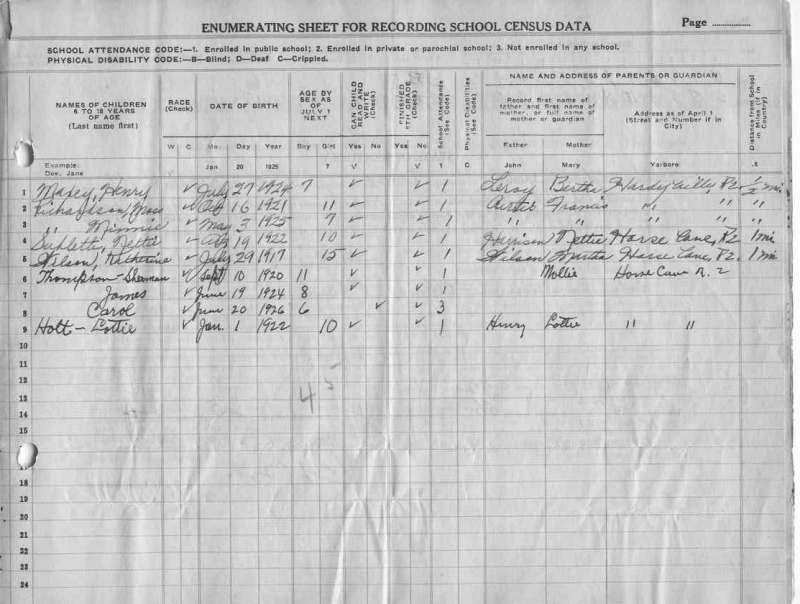 ENUMERATING SHEET FOR RECORDING SCHOOL CENSUS DATA Page
SCHOOL ATTENDANCE CODE:—1. Enrolled in public school; 2. Enrolled in private or parochial school; 3. Not enrolled in any school.
PHYSICAL DISABILITY CODE:—B—Blind; D—Deaf C—Crippled.
NAMES OF CHILDREN 6 TO 18 YEARS OF AGE (Last name first)
RACE (Check)
DATE OF BIRTH
AGE BY SEX AS OF JULY 1 NEXT
CAN CHILD READ AND WRITE (Check)
FINISHED 8TH GRADE (Check)
School Attendance (See Code)
Physical Disabilities (See Code)
NAME AND ADDRESS OF PARENTS OR GUARDIAN
Record first name of father and first name of mother, or full name of mother or guardian
Address as of April 1 (Street and Number if in City)
Distance from School in Miles (if in Country)
W C Mo. Day Year Boy Girl Yes No Yes No Father Mother
Example: Doe, Jane √ Jan 20 1925 7 √ √ 1 C John Mary Yarboro .5
1 Maxey, Henry ✓ July 27 1924 7 ✓ ✓ 1 Leroy Bertha Hardyville R2 1/2 mi
2 Richardson, ✓ 16 1921 11 ✓ ✓ 1 Francis " " "
3 " Minnie ✓ May 3 1925 7 ✓ ✓ 1 " " " " "
4 Nettie ✓ 19 1922 10 ✓ ✓ 1 Harrison Nettie Horse Cave, R2 1 mi
5 Wilson, Katherine ✓ July 29 1917 15 ✓ ✓ 1 Wilson Martha Horse Cave, R2. 1 mi
6 Thompson - Sherman ✓ Sept 10 1920 11 ✓ ✓ 1 Mollie Horse Cave R. 2
7 James ✓ June 19 1924 8 ✓ ✓ 1
8 Carol ✓ June 20 1926 6 ✓ ✓ 3
9 Holt - Lottie ✓ Jan. 1 1922 10 ✓ ✓ 1 Henry Lottie " "
10
11
12
13 45
14
15
16
17
18
19
20
21
22
23
24